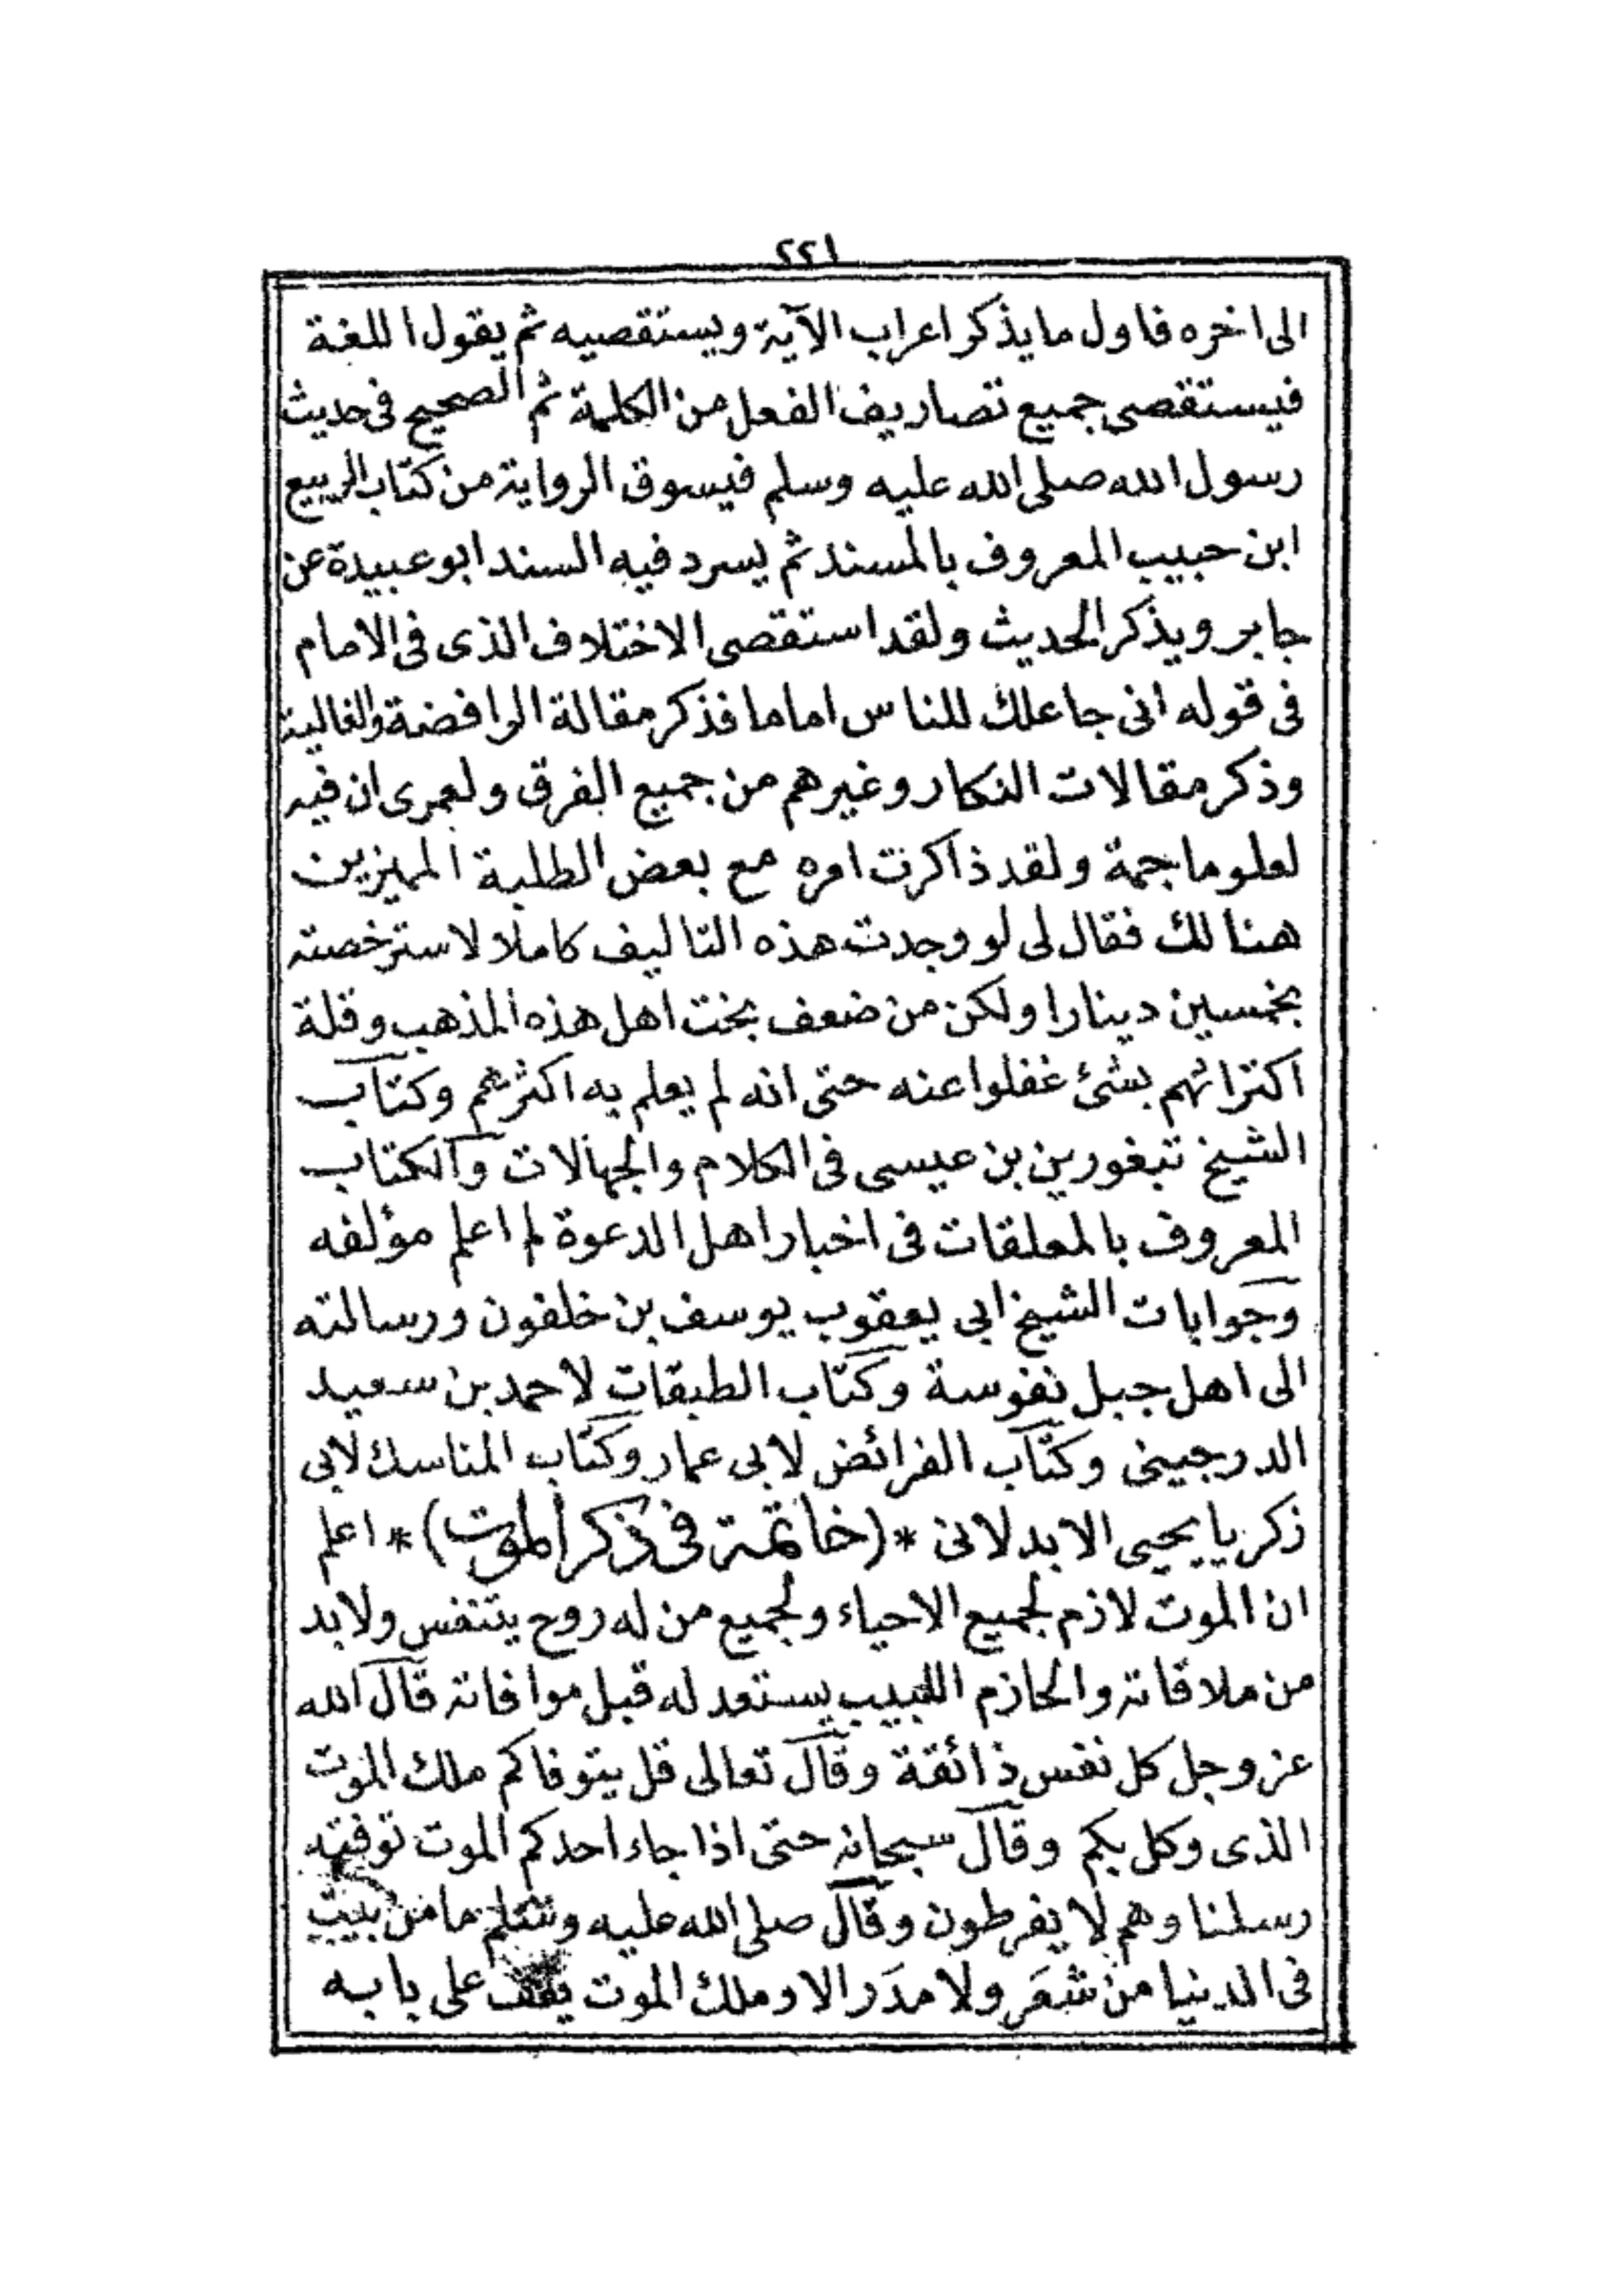 ٢٢١
الى اخره فاول ما يذكر اعراب الآية ويستقصيه ثم يقول اللغة
فيستقصى جميع تصاريف الفعل من الكلمة ثم الصحيح فى حديث
رسول الله صلى الله عليه وسلم فيسوق الرواية من كتاب الربيع
ابن حبيب المعروف بالمسند ثم يسرد فيه السند ابو عبيدة عن
جابر ويذكر الحديث ولقد استقصى الاختلاف الذى فى الامام
فى قوله انى جاعلك للناس اماما فذكر مقالة الرافضة والغالية
وذكر مقالات النكار وغيرهم من جميع الفرق ولعمرى ان فيه
لعلوما جمة ولقد ذاكرت امره مع بعض الطلبة المميزين
هنالك فقال لى لو وجدت هذه التاليف كاملا لاسترخصته
بخمسين دينارا ولكن من ضعف بخت اهل هذه المذهب وقلة
اكتراثهم بشئ غفلوا عنه حتى انه لم يعلم به اكثرهم وكتاب
الشيخ تبغورين بن عيسى فى الكلام والجهالات والكتاب
المعروف بالمعلقات فى اخبار اهل الدعوة لم اعلم مؤلفه
وجوابات الشيخ ابى يعقوب يوسف بن خلفون ورسالته
الى اهل جبل نفوسة وكتاب الطبقات لاحمد بن سعيد
الدرجينى وكتاب الفرائض لابى عمار وكتاب المناسك لابى
زكريا يحيى الابدلانى *(خاتمة فى ذكر الموت)* اعلم
ان الموت لازم لجميع الاحياء ولجميع من له روح يتنفس ولابد
من ملاقاته والحازم اللبيب يستعد له قبل موافاته قال الله
عز وجل كل نفس ذائقة وقال تعالى قل يتوفاكم ملك الموت
الذى وكل بكم وقال سبحانه حتى اذا جاء احدكم الموت توفته
رسلنا وهم لا يفرطون وقال صلى الله عليه وسلم ما من بيت
فى الدنيا من شَعَر ولا مدَر الا وملك الموت يقف على بابه